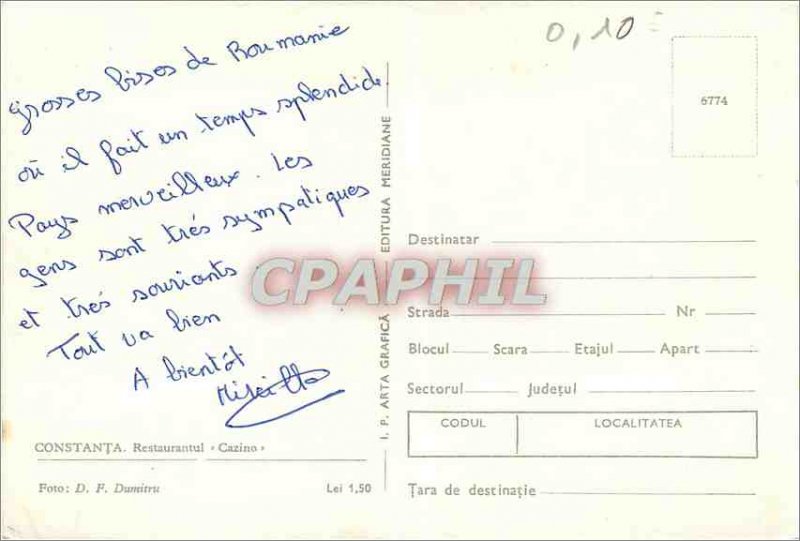 0,10
Grosses bises de Roumanie
où il fait un temps splendide.
Pays merveilleux. Les
gens sont très sympatiques
et très souriants
Tout va bien
A bientôt
CONSTANȚA. Restaurantul «Cazino»
Foto: D. F. Dumitru
Lei 1,50
I. P. ARTA GRAFICĂ
EDITURA MERIDIANE
CPAPHIL
6774
Destinatar
Strada Nr
Blocul Scara Etajul Apart
Sectorul Județul
CODUL LOCALITATEA
Țara de destinație